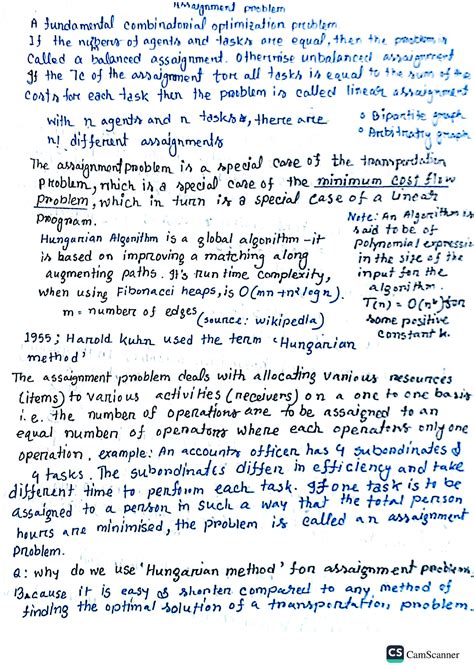 Assaignment problem
A fundamental combinatorial optimization problem
If the numbers of agents and tasks are equal, then the problem is
called a balanced assaignment. Otherwise unbalanced assaignment
If the TC of the assaignment for all tasks is equal to the sum of the
costs for each task then the problem is called linear assaignment
with n agents and n tasks, there are
n! different assaignments
o Bipartite graph
o Arbitrary graph
The assaignment problem is a special case of the transportation
problem, which is a special case of the minimum cost flow
problem, which in turn is a special case of a linear
program.
Note: An Algorithm is
said to be of
polynomial expression
in the size of the
input for the
algorithm.
T(n) = O(n^k) for
some positive
constant k.
Hungarian Algorithm is a global algorithm - it
is based on improving a matching along
augmenting paths. It's run time complexity,
when using Fibonacci heaps, is O(mn+n² log n).
m = number of edges (source: wikipedia)
1955; Harold Kuhn used the term 'Hungarian
method'
The assaignment problem deals with allocating various resources
(items) to various activities (receivers) on a one to one basis
i.e. the number of operations are to be assaigned to an
equal number of operators where each operators only one
operation. example: An accounts officer has 4 subordinates &
4 tasks. The subordinates differ in efficiency and take
different time to perform each task. If one task is to be
assaigned to a person in such a way that the total person
hours are minimised, the problem is called an assaignment
problem.
Q: why do we use 'Hungarian method' for assaignment problem.
Because it is easy & shorter compared to any method of
finding the optimal solution of a transportation problem.
CS CamScanner